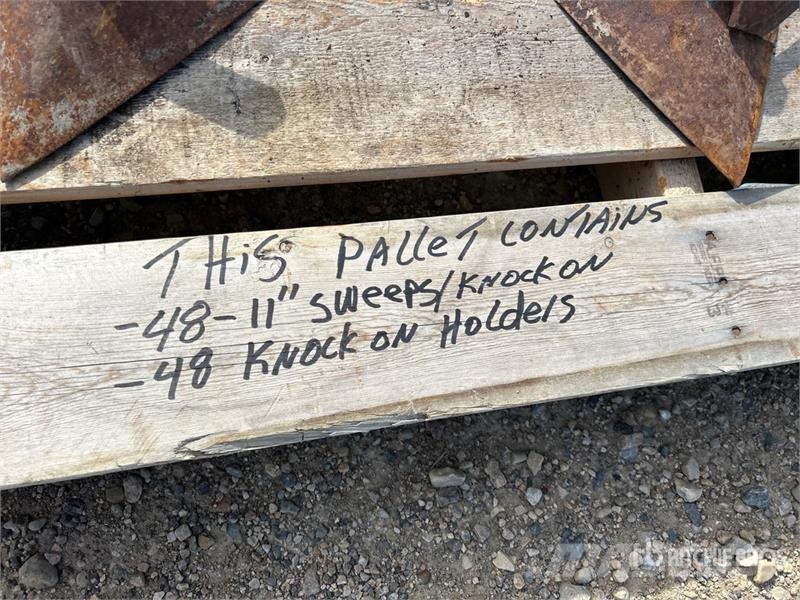 THiS PALLET CONTAINS
-48-11" SWEEPS/KNOCK ON
-48 KNOCK ON HOLDERS
rb RITCHIE BROS